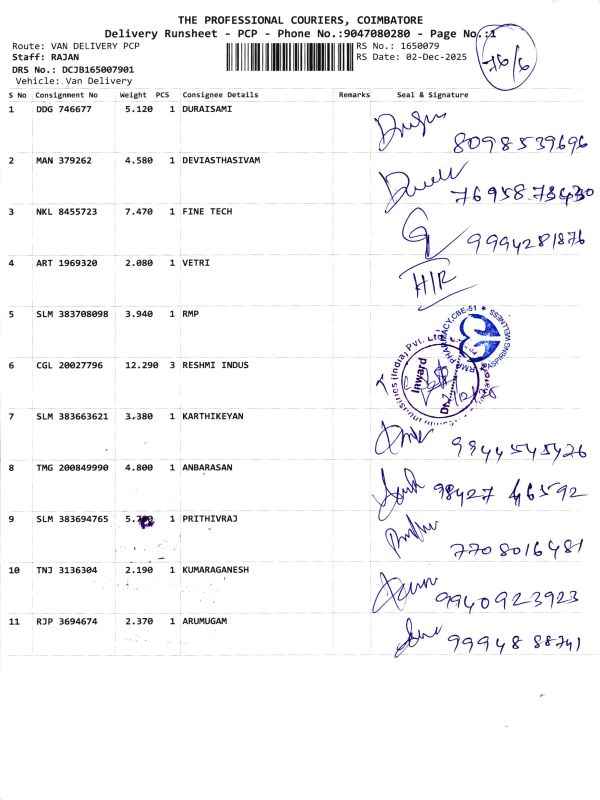 THE PROFESSIONAL COURIERS, COIMBATORE
Delivery Runsheet - PCP - Phone No.:9047080280 - Page No.:1
76/6
Route: VAN DELIVERY PCP RS No.: 1650079
Staff: RAJAN RS Date: 02-Dec-2025
DRS No.: DCJB165007901
Vehicle: Van Delivery
S No Consignment No Weight PCS Consignee Details Remarks Seal & Signature
1 DDG 746677 5.120 1 DURAISAMI
8098539696
2 MAN 379262 4.580 1 DEVIASTHASIVAM
7695873430
3 NKL 8455723 7.470 1 FINE TECH
9994281876
4 ART 1969320 2.080 1 VETRI
H/R
5 SLM 383708098 3.940 1 RMP
RMP PHARMACY,CBE-51 ★ ASPIRING WELLNESS
6 CGL 20027796 12.290 3 RESHMI INDUS
Industries (India) Pvt. Ltd
Inward
7 SLM 383663621 3.380 1 KARTHIKEYAN
9944545426
8 TMG 200849990 4.800 1 ANBARASAN
98427 46592
9 SLM 383694765 5.700 1 PRITHIVRAJ
7708016481
10 TNJ 3136304 2.190 1 KUMARAGANESH
9940923923
11 RJP 3694674 2.370 1 ARUMUGAM
99948 88741